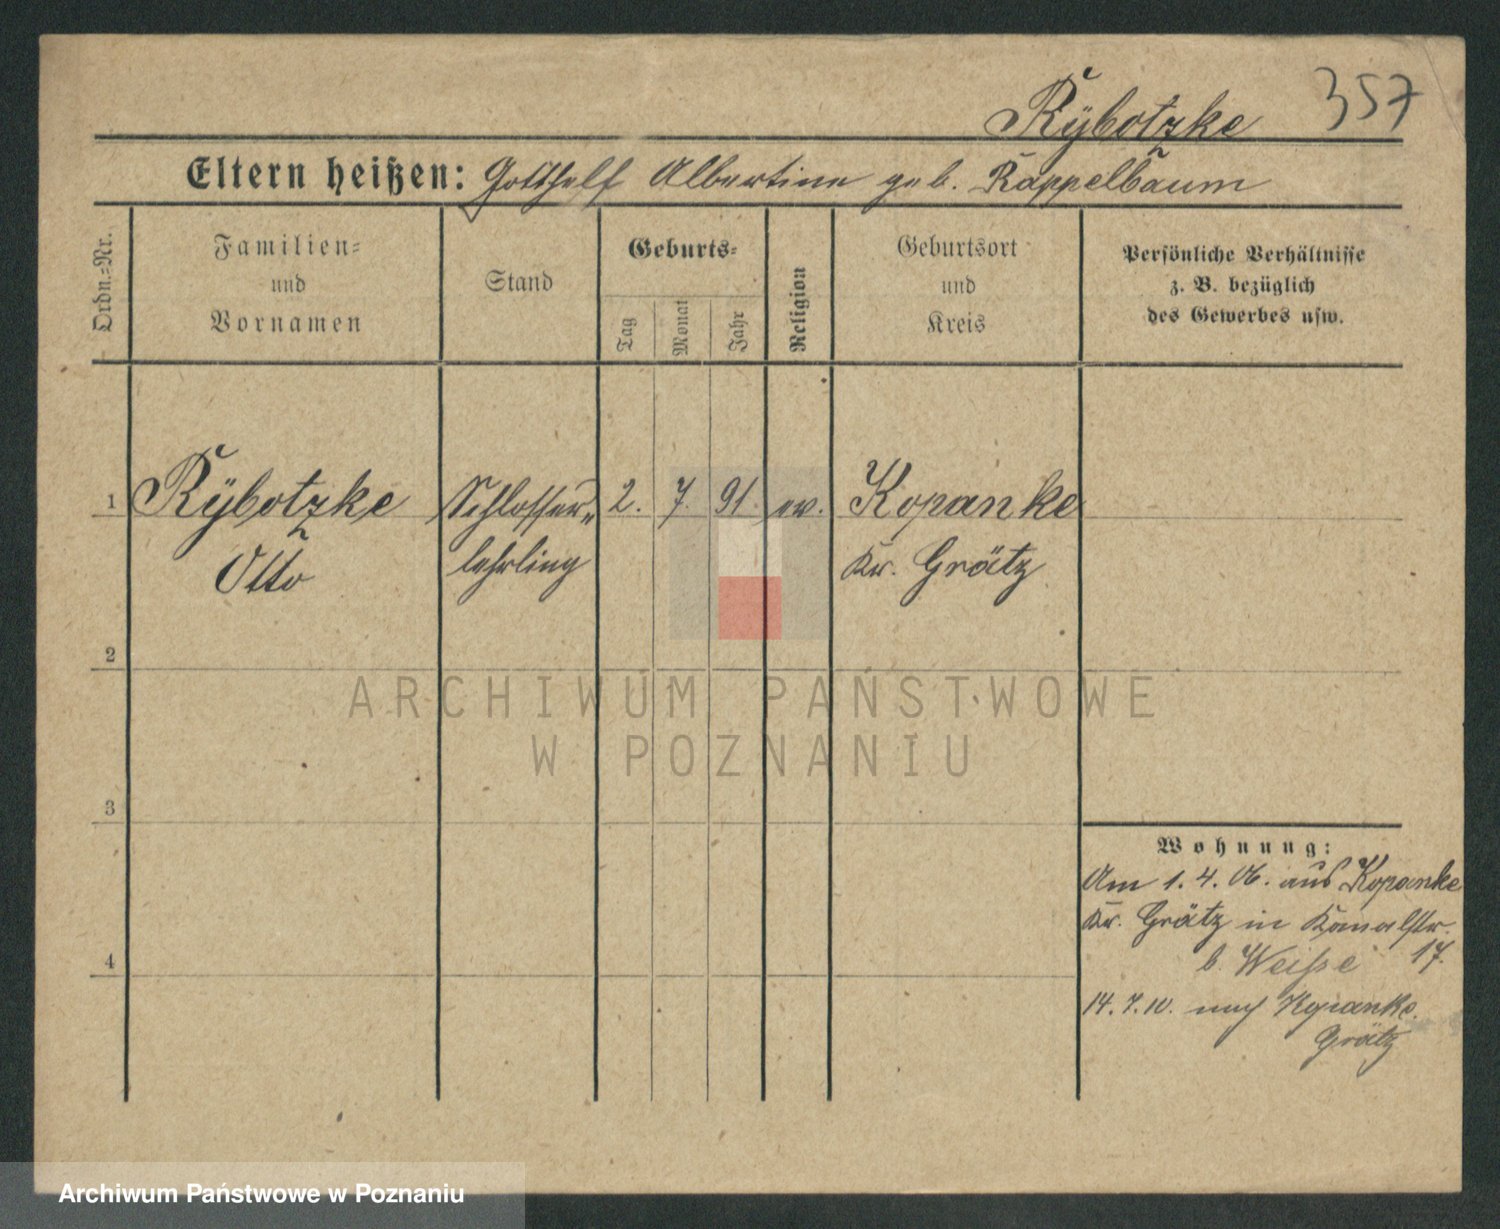 357
Rÿbotzke
Eltern heißen: Gotthelf Albertine geb. Rappelbaum
Ordn.=Nr.
Familien=
und
Vornamen
Stand
Geburts=
Tag
Monat
Jahr
Religion
Geburtsort
und
Kreis
Persönliche Verhältnisse
z. B. bezüglich
des Gewerbes usw.
1 Rÿbotzke Schlosser= 2. 7. 91. ev. Kopanke
Otto lehrling Kr. Grätz
2
3
4
Wohnung:
Am 1. 4. 06. aus Kopanke
Kr. Grätz in Kanalstr.
b. Weisse 17.
14. 7. 10. nach Kopanke.
Grätz
ARCHIWUM PAŃSTWOWE
W POZNANIU
Archiwum Państwowe w Poznaniu